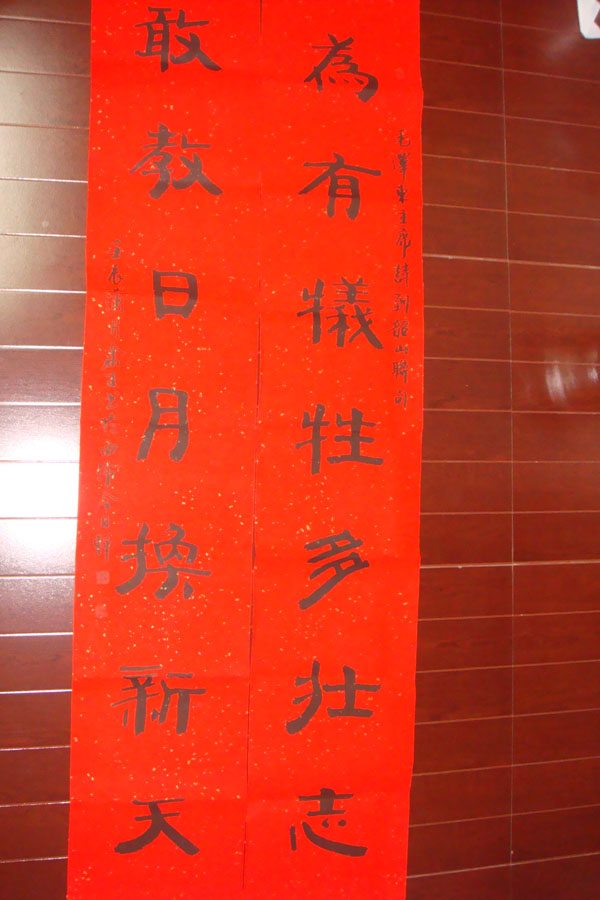 毛澤東主席詩到韶山勝句
為有犧牲多壯志
敢教日月換新天